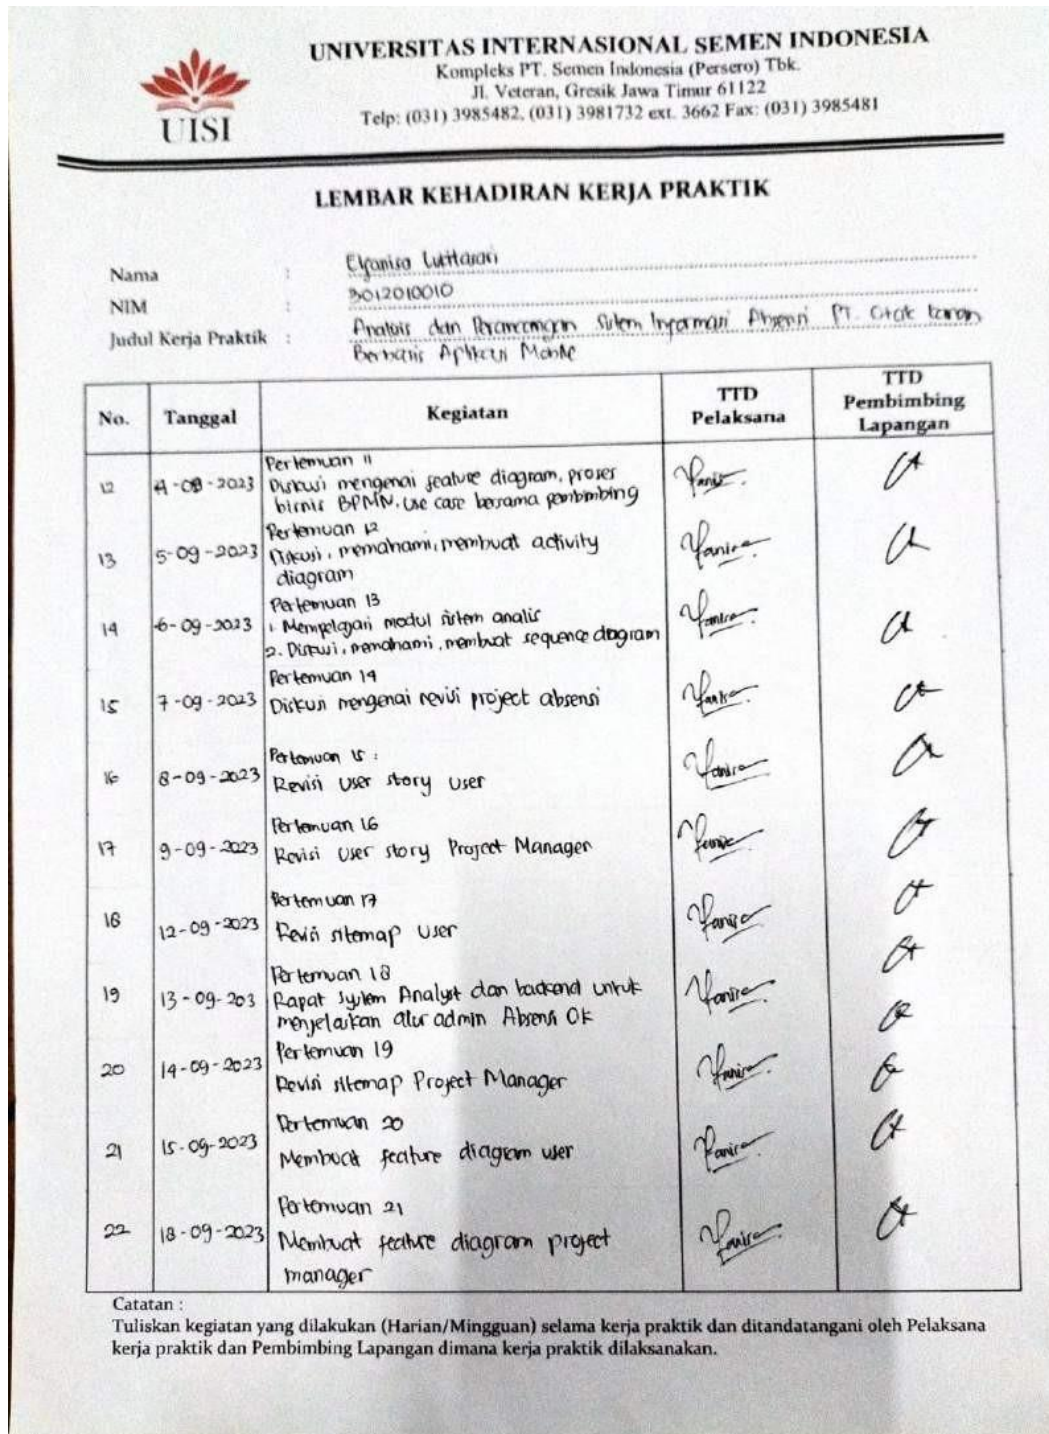 UISI
UNIVERSITAS INTERNASIONAL SEMEN INDONESIA
Kompleks PT. Semen Indonesia (Persero) Tbk.
Jl. Veteran, Gresik Jawa Timur 61122
Telp: (031) 3985482, (031) 3981732 ext. 3662 Fax: (031) 3985481
LEMBAR KEHADIRAN KERJA PRAKTIK
Nama :
NIM : 3012010010
Judul Kerja Praktik : Analisis dan Perancangan Sistem Informasi Absensi PT. Otak Kanan
Berbasis Aplikasi Mobile
No. Tanggal Kegiatan TTD Pelaksana TTD Pembimbing Lapangan
12 4-09-2023 Pertemuan 11
Diskusi mengenai feature diagram, proses
bisnis BPMN, use case bersama pembimbing
13 5-09-2023 Pertemuan 12
Diskusi, memahami, membuat activity
diagram
14 6-09-2023 Pertemuan 13
1. Mempelajari modul sistem analis
2. Diskusi, memahami, membuat sequence diagram
15 7-09-2023 Pertemuan 14
Diskusi mengenai revisi project absensi
16 8-09-2023 Pertemuan 15 :
Revisi user story user
17 9-09-2023 Pertemuan 16
Revisi user story Project Manager
18 12-09-2023 Pertemuan 17
Revisi sitemap user
19 13-09-203 Pertemuan 18
Rapat System Analyst dan backend untuk
menjelaskan alur admin Absensi OK
20 14-09-2023 Pertemuan 19
Revisi sitemap Project Manager
21 15-09-2023 Pertemuan 20
Membuat feature diagram user
22 18-09-2023 Pertemuan 21
Membuat feature diagram project
manager
Catatan :
Tuliskan kegiatan yang dilakukan (Harian/Mingguan) selama kerja praktik dan ditandatangani oleh Pelaksana
kerja praktik dan Pembimbing Lapangan dimana kerja praktik dilaksanakan.